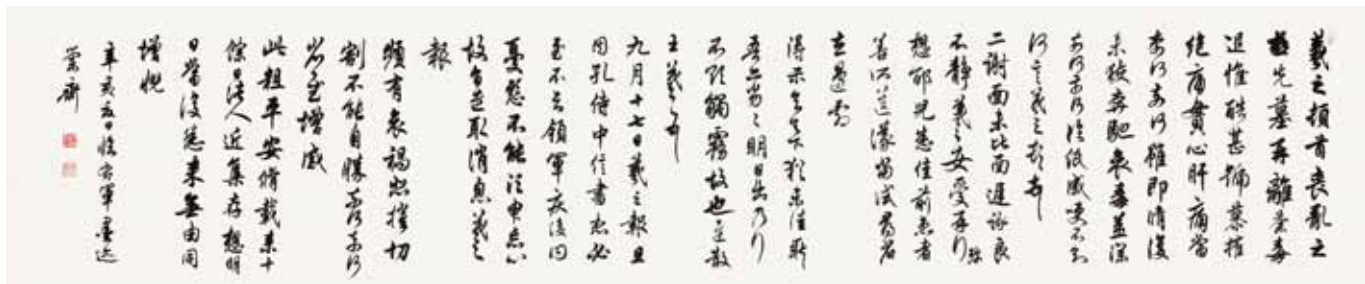 羲之頓首喪亂之
極先墓再離荼毒
追惟酷甚號慕摧
絕痛貫心肝痛當
奈何奈何雖即脩復
未獲奔馳哀毒益深
奈何奈何臨紙感哽不知
何言羲之頓首
二謝面未比面遲詠良
不靜羲之女愛再行珍
想邵兒悉佳前患者
善所送議當試尋省
左邊劇
得示知足下猶未佳耿
吾亦劣劣明日出乃行
不欲觸霧故也遲散
王羲之頓首
九月十七日羲之報且
因孔侍中信書想必
至不知領軍疾後問
憂懸不能須臾忘心
故旨遣取消息羲之
報
頻有哀禍悲摧切
割不能自勝奈何奈何
省慰增感
此粗平安脩載來十
餘日諸人近集存想明
日當復悉來無由同
增慨
辛亥日臨右軍墨迹
齋